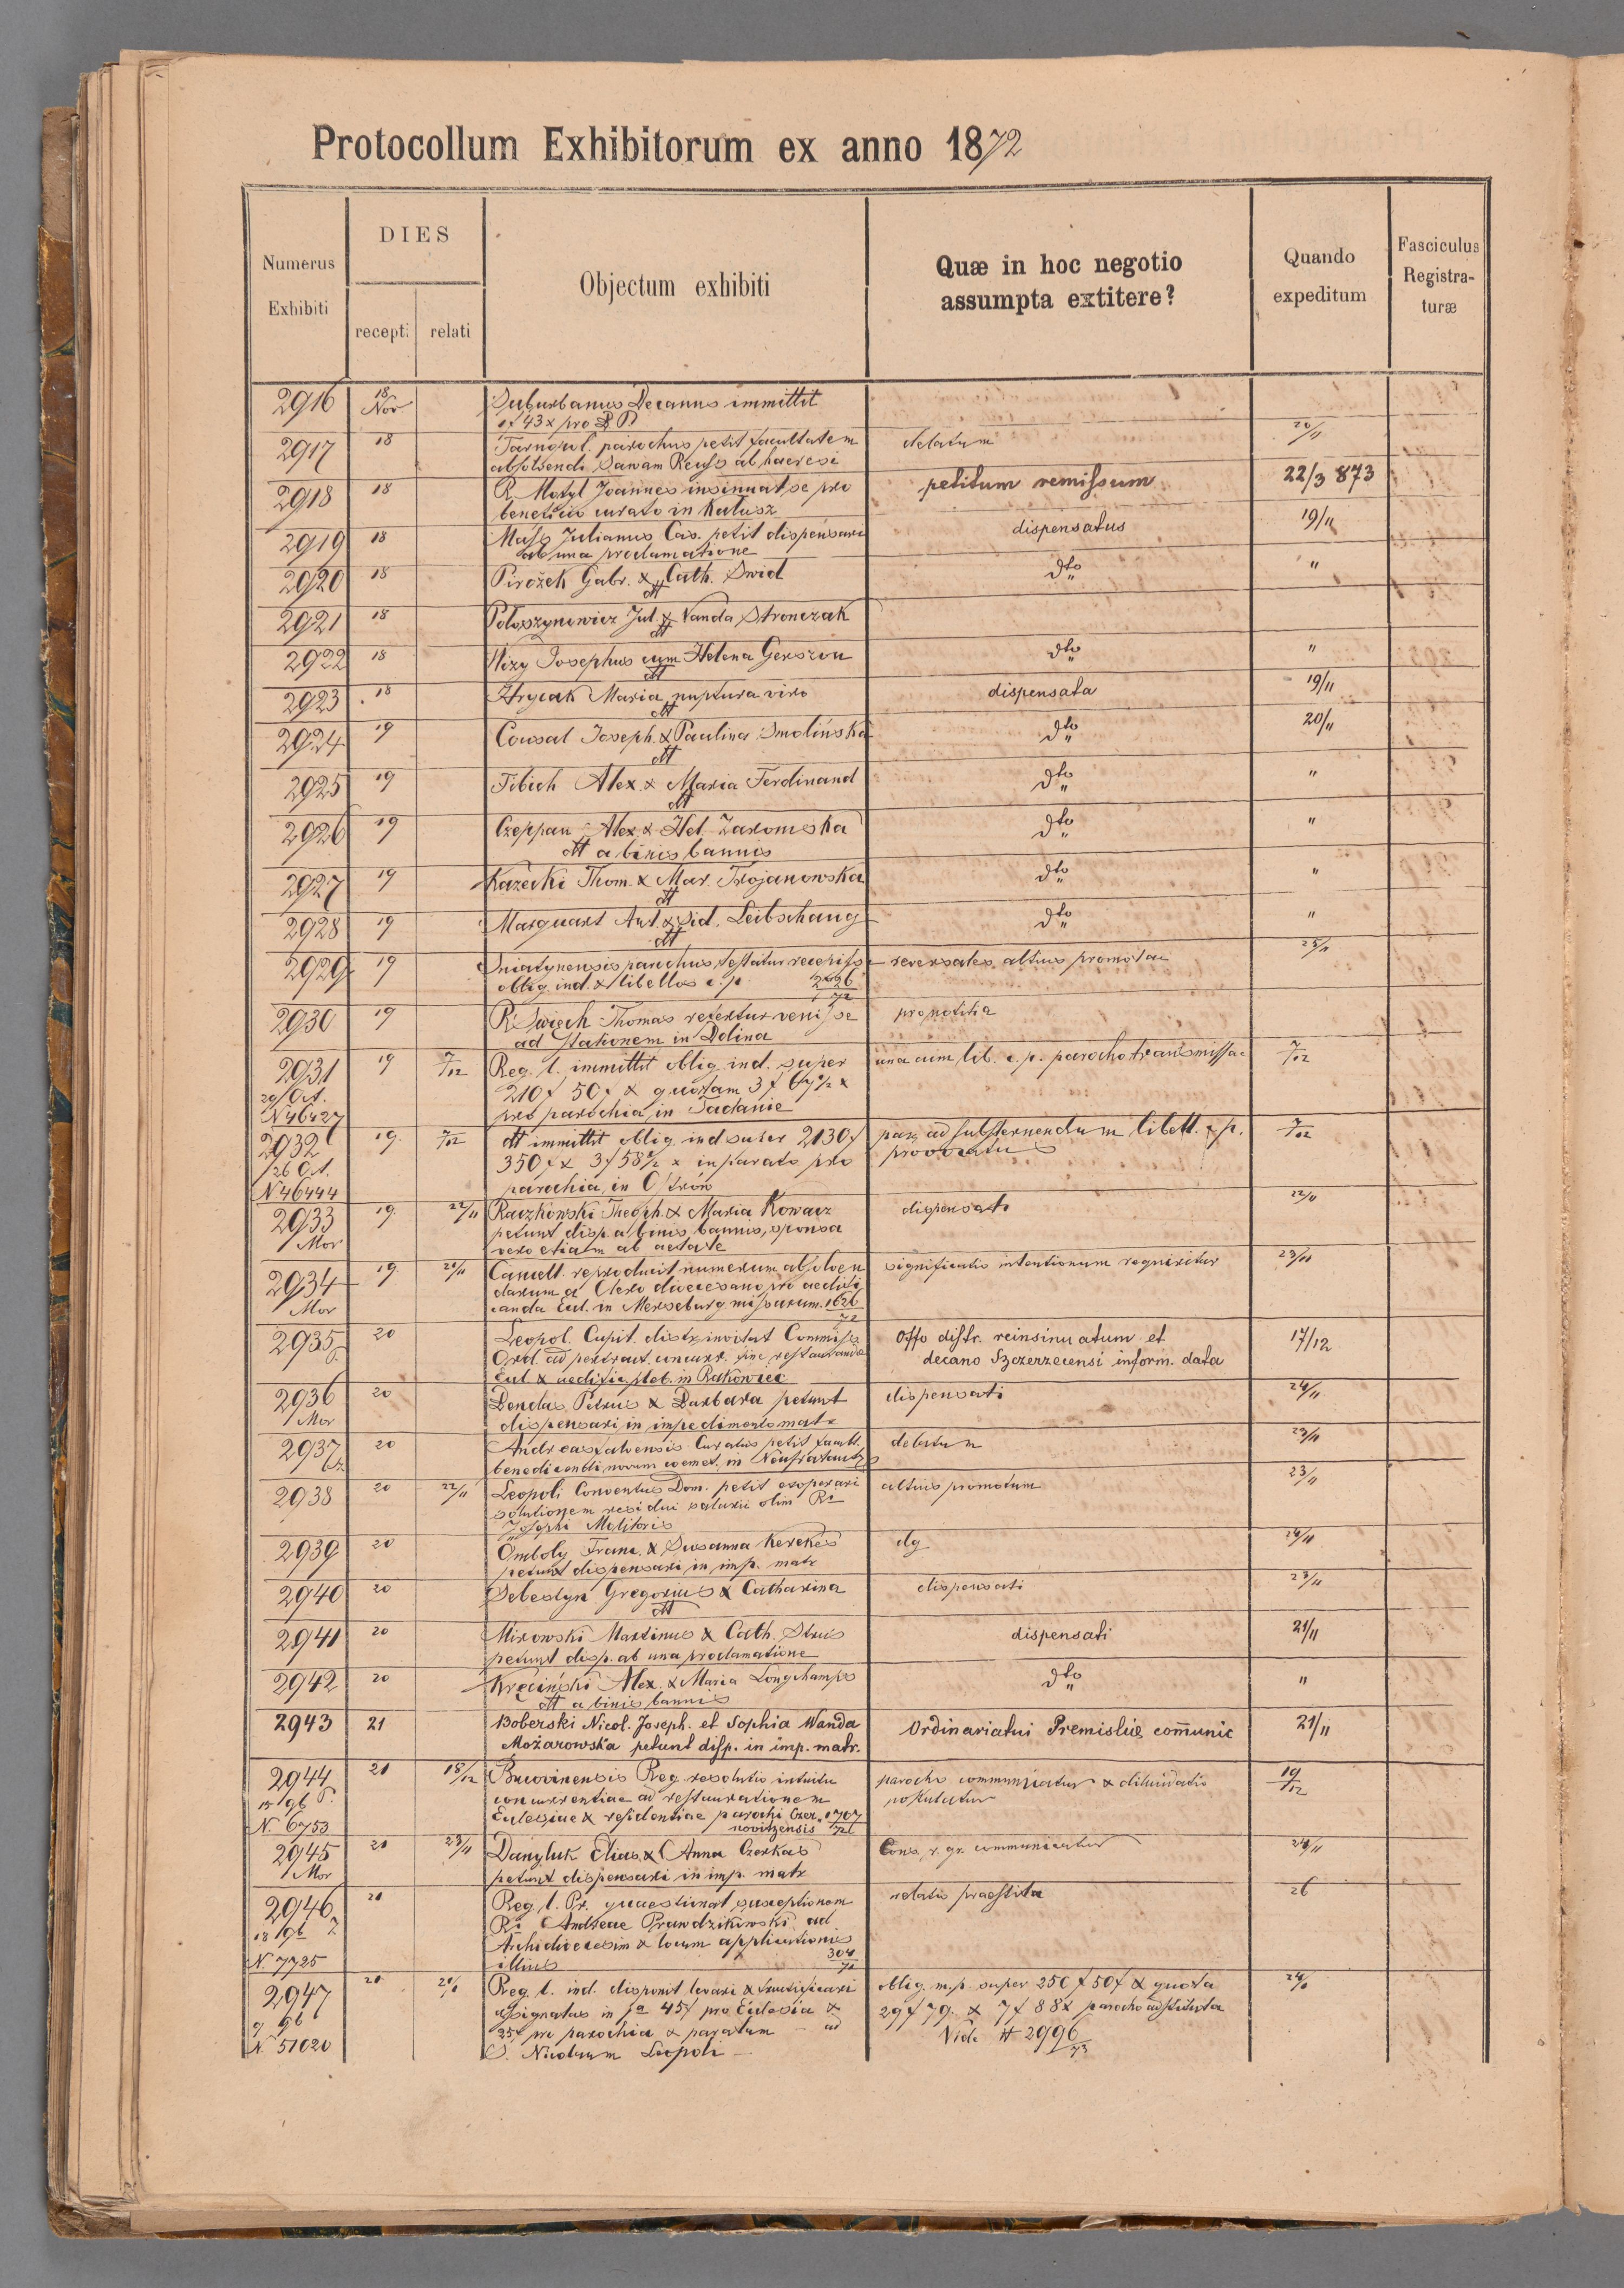 Protocollum Exhibitorum ex anno 1872
Numerus Exhibiti
DIES
recepti
relati
Objectum exhibiti
Quæ in hoc negotio assumpta extitere?
Quando expeditum
Fasciculus Registraturæ
2916 18 Nov Suburbanus Decanus immittit
1 f 43 x pro
2917 18 Tarnopol. parochus petit facultatem delatum 20/11
absolvendi Sawam ab haeresi
2918 18 R. Motyl Joannes insinuat se pro petitum remissum 22/3 873
beneficio curato in Kałusz
2919 18 Julianus Cas. petit dispensari dispensatus 19/11
ab una proclamatione
2920 18 Pirożek Gabr. & Cath. Swid dto "
dtt
2921 18 Jul. & Vanda Stronczak
dtt
2922 18 Josephus cum Helena Gerszon dto "
dtt
2923 18 Hrycak Maria nuptura viro dispensata 19/11
dtt
2924 19 Cousal Joseph. & Paulina Smolińska dto 20/11
dtt
2925 19 Tibich Alex. & Maria Ferdinand dto "
dtt
2926 19 Czeppan Alex & Hel. Zaromska dto "
dtt a binis bannis
2927 19 Kazecki Thom. & Mar. Trojanowska dto "
dtt
2928 19 Marquart Ant. & Sid. Leitschaug dto "
dtt
2929 19 Sniatynensis parochus testatur recepisse reversales altius promotae 25/11
oblig. ind. & libellos c. p. 2426/72
2930 19 R. Swiech Thomas refertur venisse pro notitia
ad stationem in Dolina
2931 19 7/12 Reg. l. immittit oblig. ind. super una cum lib. c. p. parocho transmissae 7/12
29 Oct. 210 f 50 f & quotam 3 f 67 1/2 x
N 46427 pro parochia in Tadanie
2932 19. 7/12 dtt immittit oblig. ind super 2130 f par. ad substernendum libell. c. p. 7/12
26 Oct. 350 f & 3 f 58 1/2 x in parato pro provocatus
N 46444 parochia in
2933 19. 22/11 Raczkowski Theoph. & Maria Kowacz dispensati 22/11
Mor petunt disp. a binis bannis, sponsa
vero etiam ab aetate
2934 19. 20/11 Cancell. reproducit numerum absolven significatio intentionum requiritur 23/11
Mor darum a Clero dioecesano pro aedifi
canda Eccl. in Merseburg missarum. 1626/72
2935 20 Leopol. Capit. distr. invitat Commiss. Offo distr. reinsinuatum et 17/12
Ord. ad pertract. concurr. fine restaurandae decano Szczerzecensi inform. data
Eccl & aedific. pleb. in Rakowiec
2936 20 Dendas Petrus & Barbara petunt dispensati 24/11
Mor dispensari in impedimento matr
2937 20 Andreasfalvensis Curatus petit facult. delatum 23/11
benedicendi novum coemet. in
2938 20 22/11 Leopoli Conventus Dom. petit exoperari altius promotum 23/11
solutionem residui salarii olim Ri
Josephi Molitoris
2939 20 Omboly Franc. & Susanna Kerekes 24/11
petunt dispensari in imp. matr
2940 20 Sebestyn Gregorius & Catharina dispensati 23/11
dtt
2941 20 Mirowski Martinus & Cath. Strus dispensati 21/11
petunt disp. ab una proclamatione
2942 20 Kręciński Alex. & Maria Longchamps dto "
dtt a binis bannis
2943 21 Boberski Nicol. Joseph. et Sophia Wanda Ordinariatui Premisliæ com̄unic 21/11
Możarowska petunt disp. in imp. matr.
2944 21 18/12 Bucovinensis Reg. resolutio intuitu parocho communicatur & dilucidatio 19/12
15/9b concurrentiae ad restaurationem postulatur
N. 6753 Ecclesiae & residentiae parochi Czer 1707/72
novitzensis
2945 21 23/11 Danyluk Elias & Anna Czerkas Cons. r. gr. communicatur 24/11
Mor petunt dispensari in imp. matr
2946 21 Reg. l. Pr. quaestionat susceptionem relatio praestita 26
18/9b Ri Andreae Prawdzikowski ad
Archidioecesim & locum applicationis
N. 7725 illius 304/72
2947 21 Reg. l. ind. disponit levari & oblig. m. p. super 250 f 50 f & quota
9/9b assignatas in f a 45 f pro Ecclesia & 29 f 79. & 7 f 88 x parocho
N. 51020 25 f pro parochia & paratum ad Vide # 2996/73
S. Nicolaum Leopoli